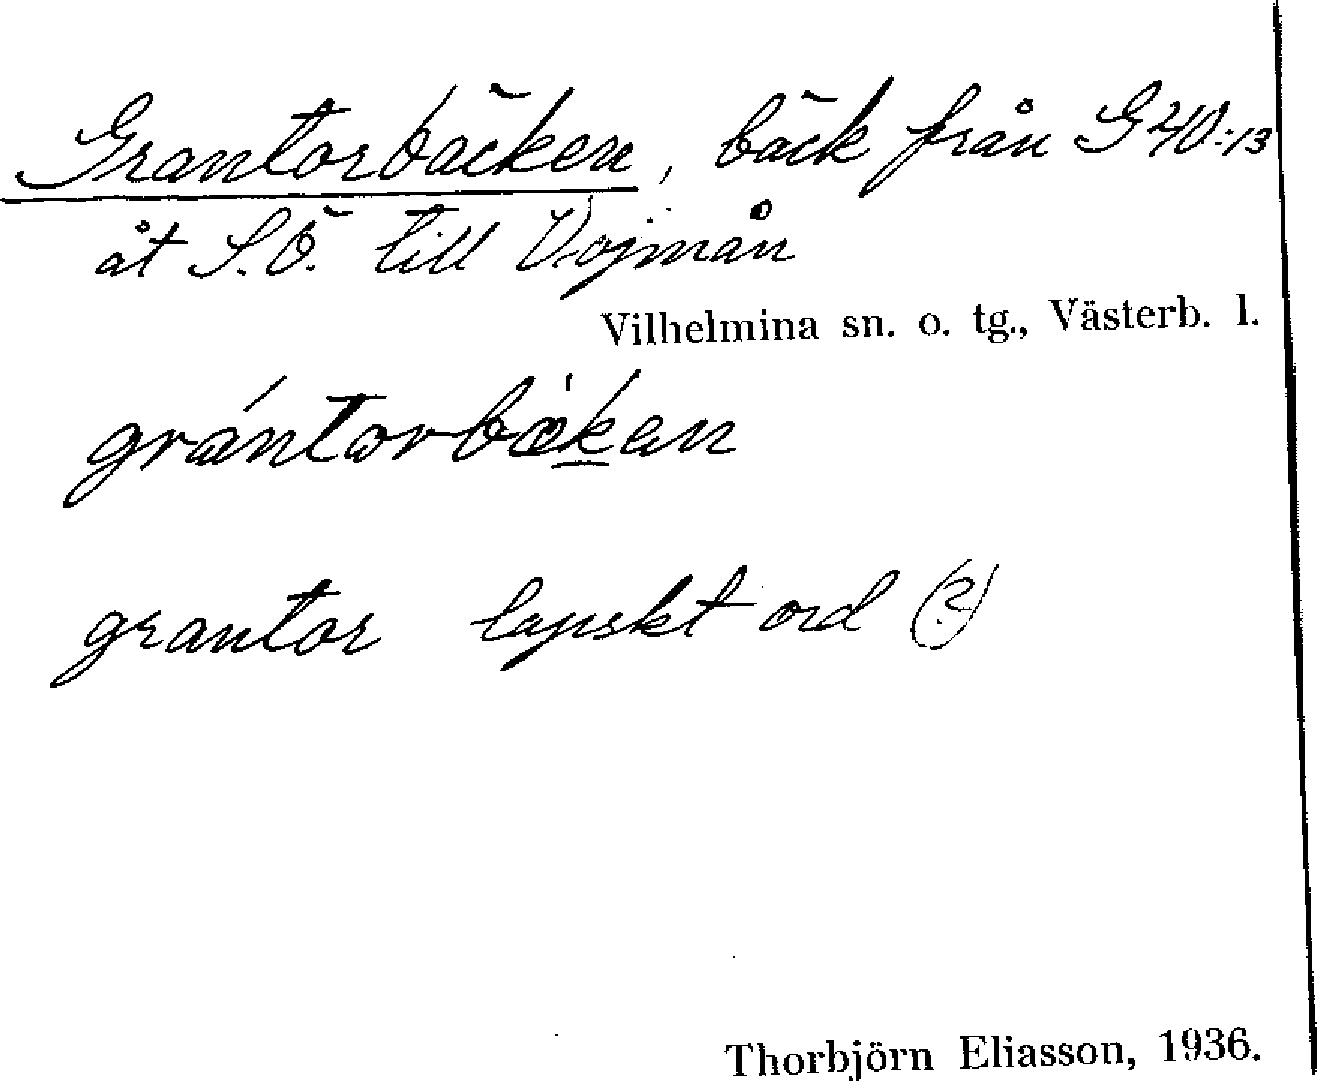 Grantorbäcken, bäck från G40:13
åt S.Ö. till Vojmån
Vilhelmina sn. o. tg., Västerb. l.
grántorbä̀ḵen
grantor lapskt ord (?)
Thorbjörn Eliasson, 1936.